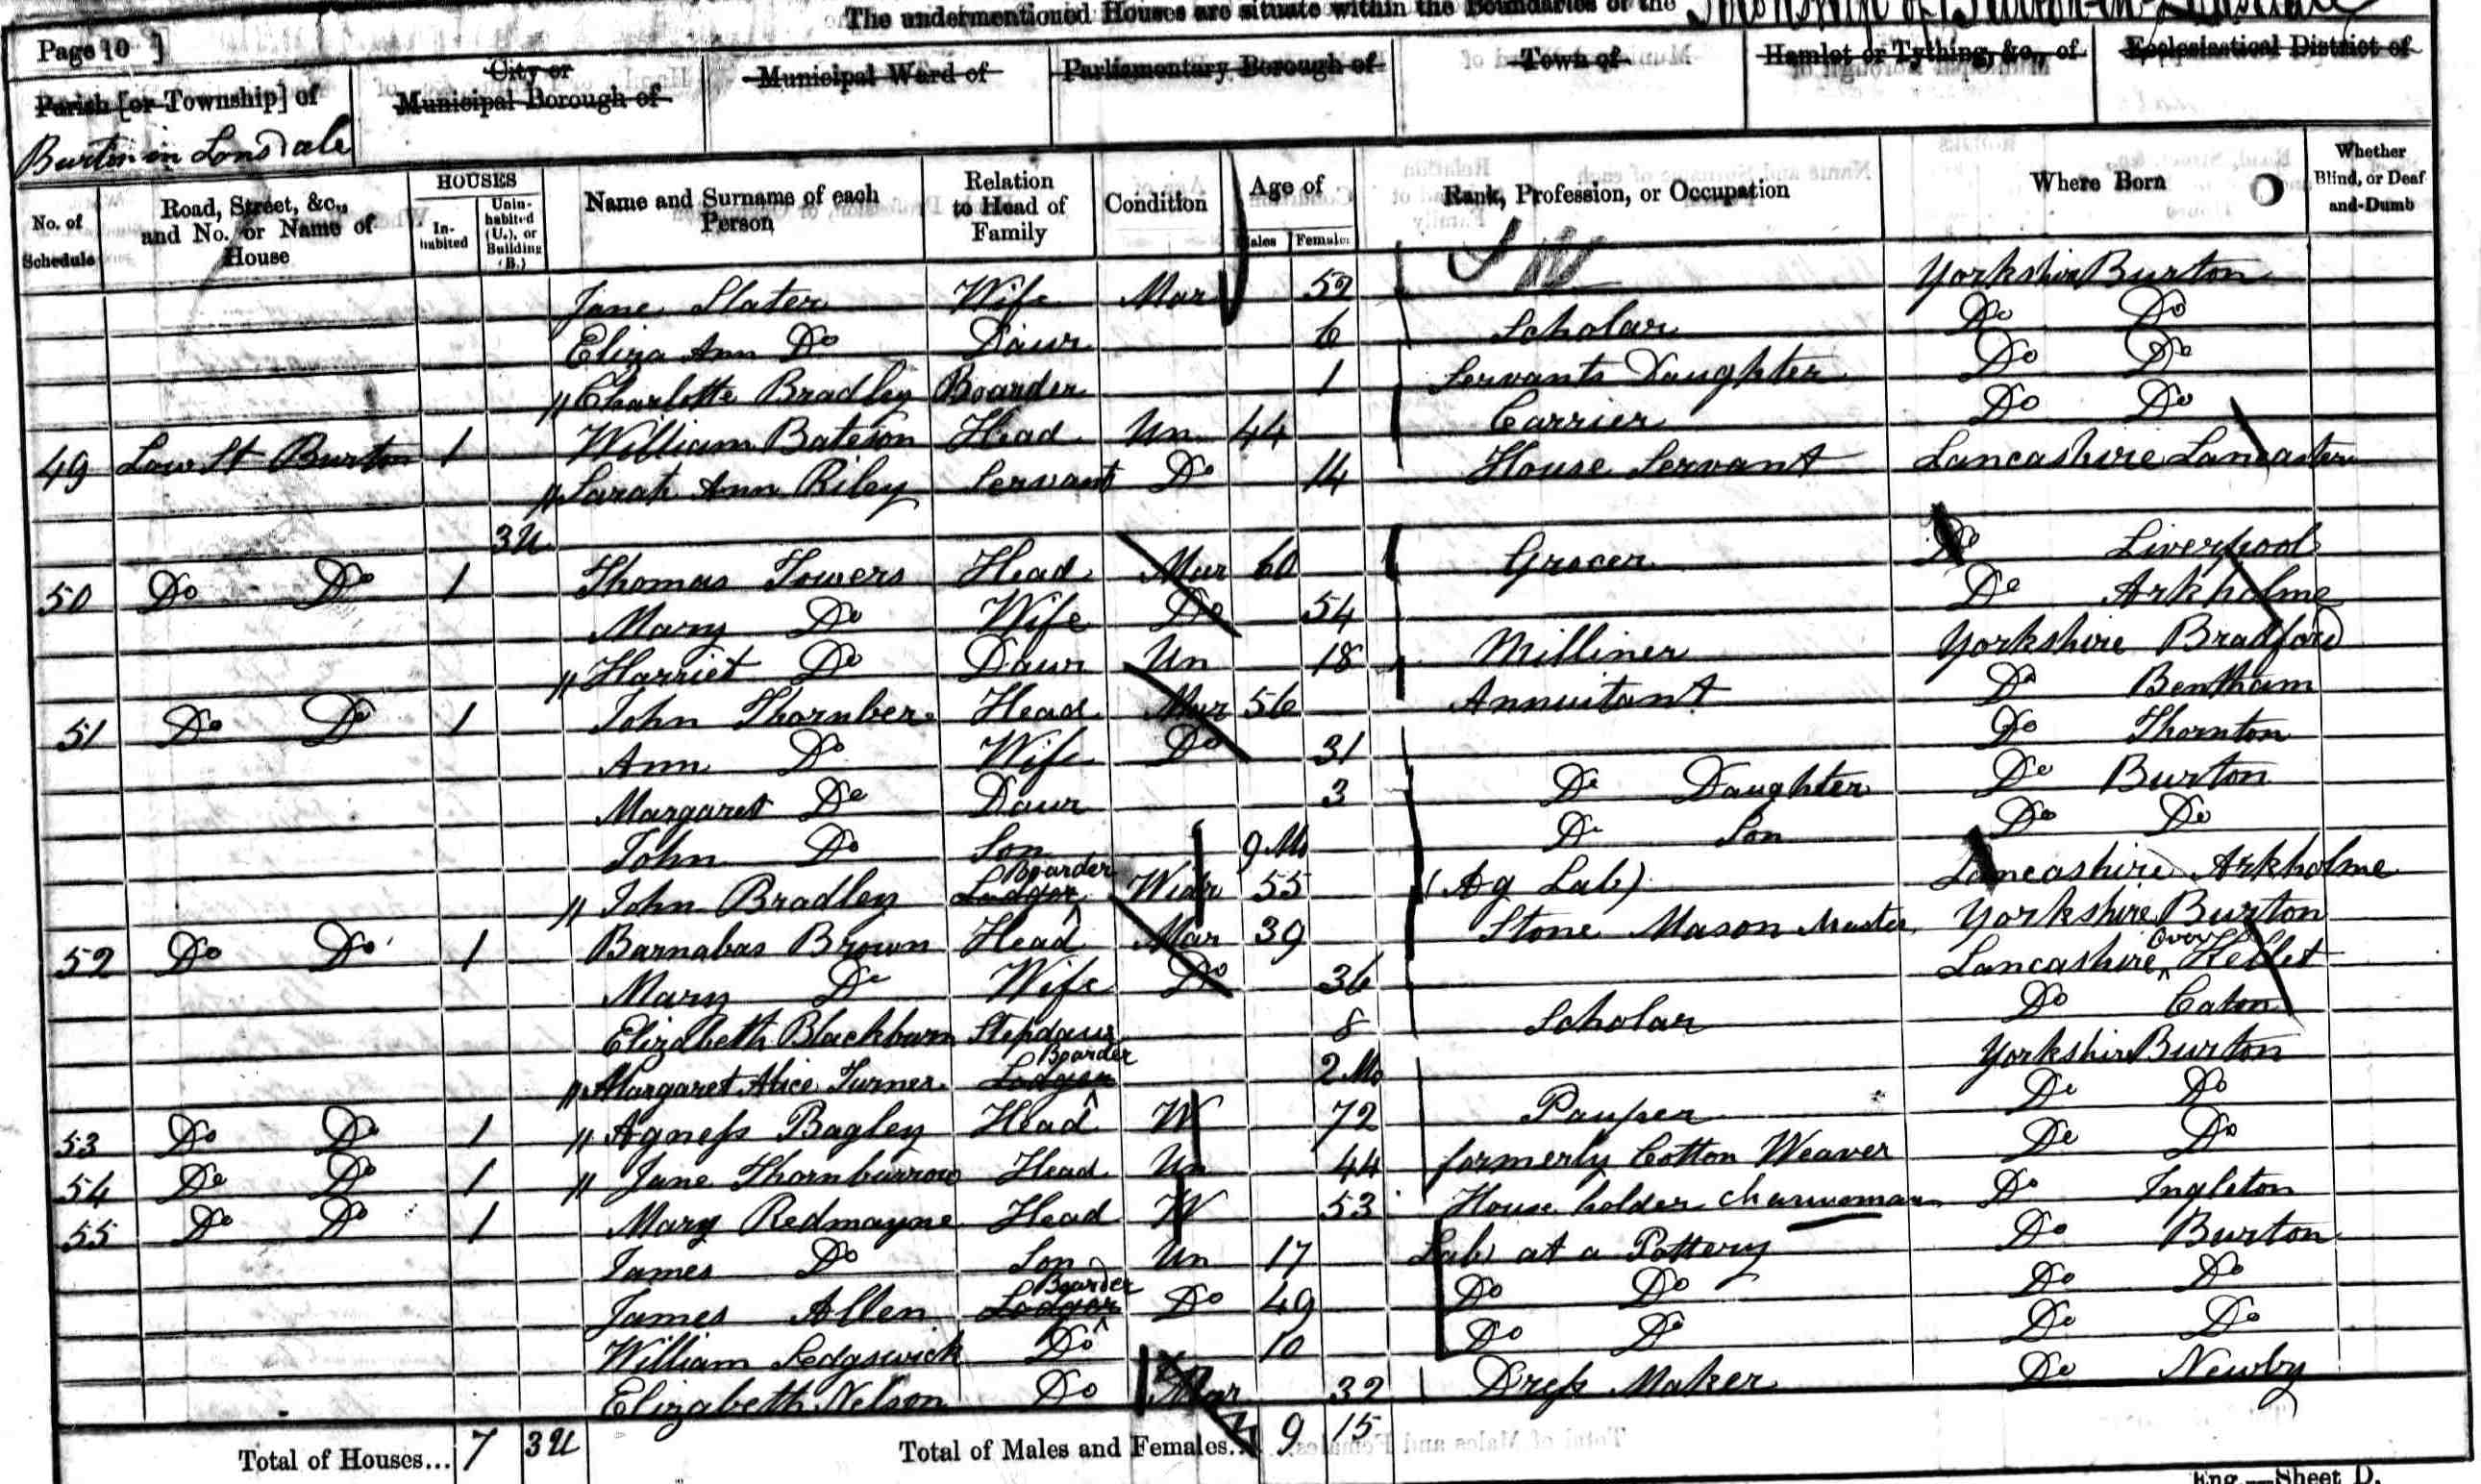 The undermentioned Houses are situate within the Boundaries of the Township of Burton-in-Lonsdale
Page 10 ]
Parish [or Township] of
City or Municipal Borough of
Municipal Ward of
Parliamentary Borough of
Town of
Hamlet or Tything, &c., of
Ecclesiastical District of
Burton in Lonsdale
No. of Schedule
Road, Street, &c., and No. or Name of House
HOUSES
In-habited
Unin-habited (U.), or Building (B.)
Name and Surname of each Person
Relation to Head of Family
Condition
Age of
Males Females
Rank, Profession, or Occupation
Where Born
Whether Blind, or Deaf-and-Dumb
Jane Slater Wife Mar 52 Yorkshire Burton
Eliza Ann Do Daur 6 Scholar Do Do
" Charlotte Bradley Boarder 1 Servants Daughter Do Do
49 Low St Burton 1 William Bateson Head Un 44 Carrier Do Do
" Sarah Ann Riley Servant Do 14 House Servant Lancashire Lancaster
3U
50 Do Do 1 Thomas Towers Head Mar 60 Grocer Do Liverpool
Mary Do Wife Do 54 Do Arkholme
" Harriet Do Daur Un 18 Milliner Yorkshire Bradford
51 Do Do 1 John Thornber Head Mar 56 Annuitant Do Bentham
Ann Do Wife Do 31 Do Thornton
Margaret Do Daur 3 Do Daughter Do Burton
John Do Son 9 Mo Do Son Do Do
" John Bradley Lodger Boarder Widr 55 (Ag Lab) Lancashire Arkholme
52 Do Do 1 Barnabas Brown Head Mar 39 Stone Mason Master Yorkshire Burton
Mary Do Wife Do 36 Lancashire Over Kellet
Elizabeth Blackburn Stepdaur 8 Scholar Do Caton
" Margaret Alice Turner Lodger Boarder 2 Mo Yorkshire Burton
53 Do Do 1 " Agness Bagley Head W 72 Pauper Do Do
54 Do Do 1 " Jane Thornburrow Head Un 44 formerly Cotton Weaver Do Do
55 Do Do 1 Mary Redmayne Head W 53 House holder Charwoman Do Ingleton
James Do Son Un 17 Lab at a Pottery Do Burton
James Allen Lodger Boarder Do 49 Do Do Do Do
William Sedgswick Do 10 Do Do Do Do
Elizabeth Nelson Do Mar 32 Dress Maker Do Newby
Total of Houses... 7 3U Total of Males and Females... 9 15
Eng.—Sheet D.